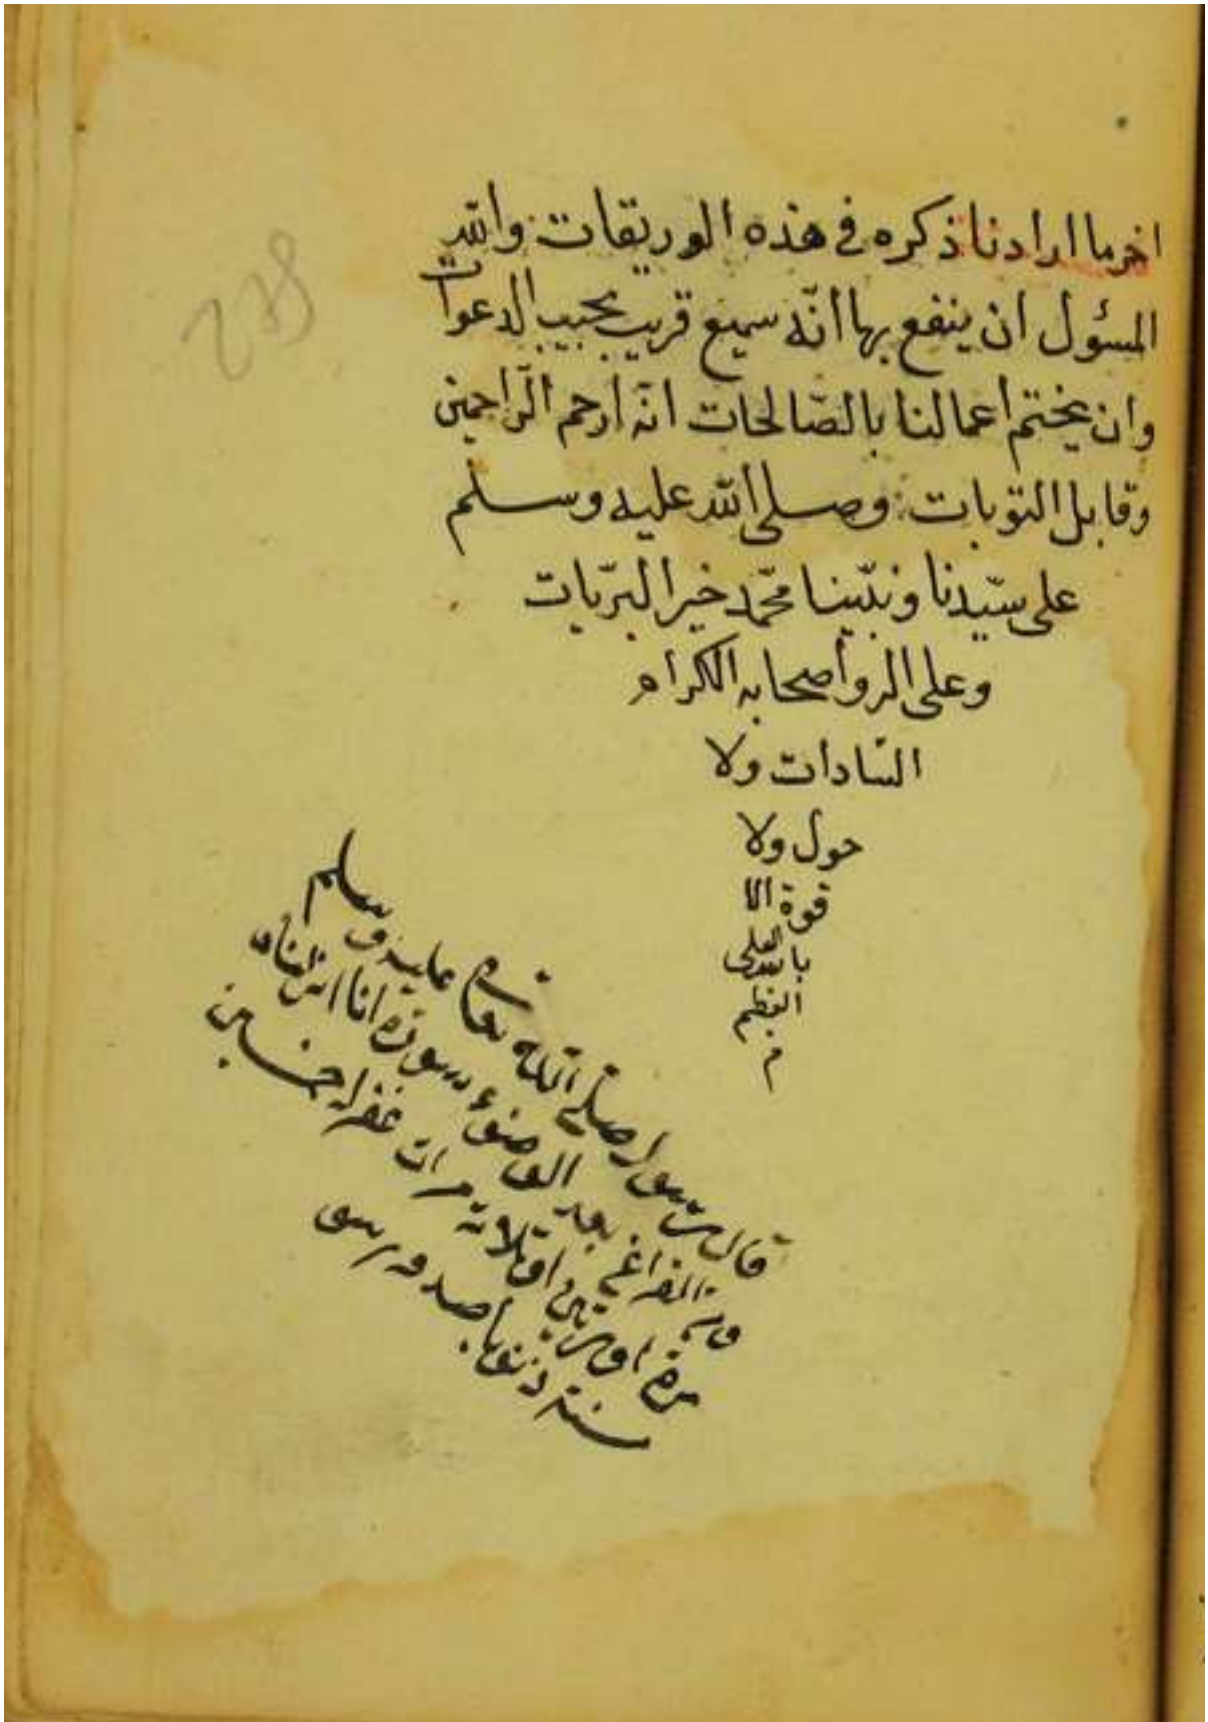 اخر ما ارادنا ذكره في هذه الوريقات والله
المسؤل ان ينفع بها انّه سميع قريب مجيب الدعوات
وان يختم اعمالنا بالصّالحات انّه ارحم الرّاحمين
وقابل التوبات وصلى الله عليه وسلم
على سيّدنا ونبيّنا محمّد خير البريّات
وعلى اله وأصحابه الكرام
السّادات ولا
حول ولا
قوة الا
بالله العلى
العظيم
م
قال رسول صلى الله عليه وسلم
الفراغ بعد الوضوء سورة انا انزلناه
مرة او مرتين او ثلاثة مرات غفر له خمسين
سنة ذنوبا صدق رسول